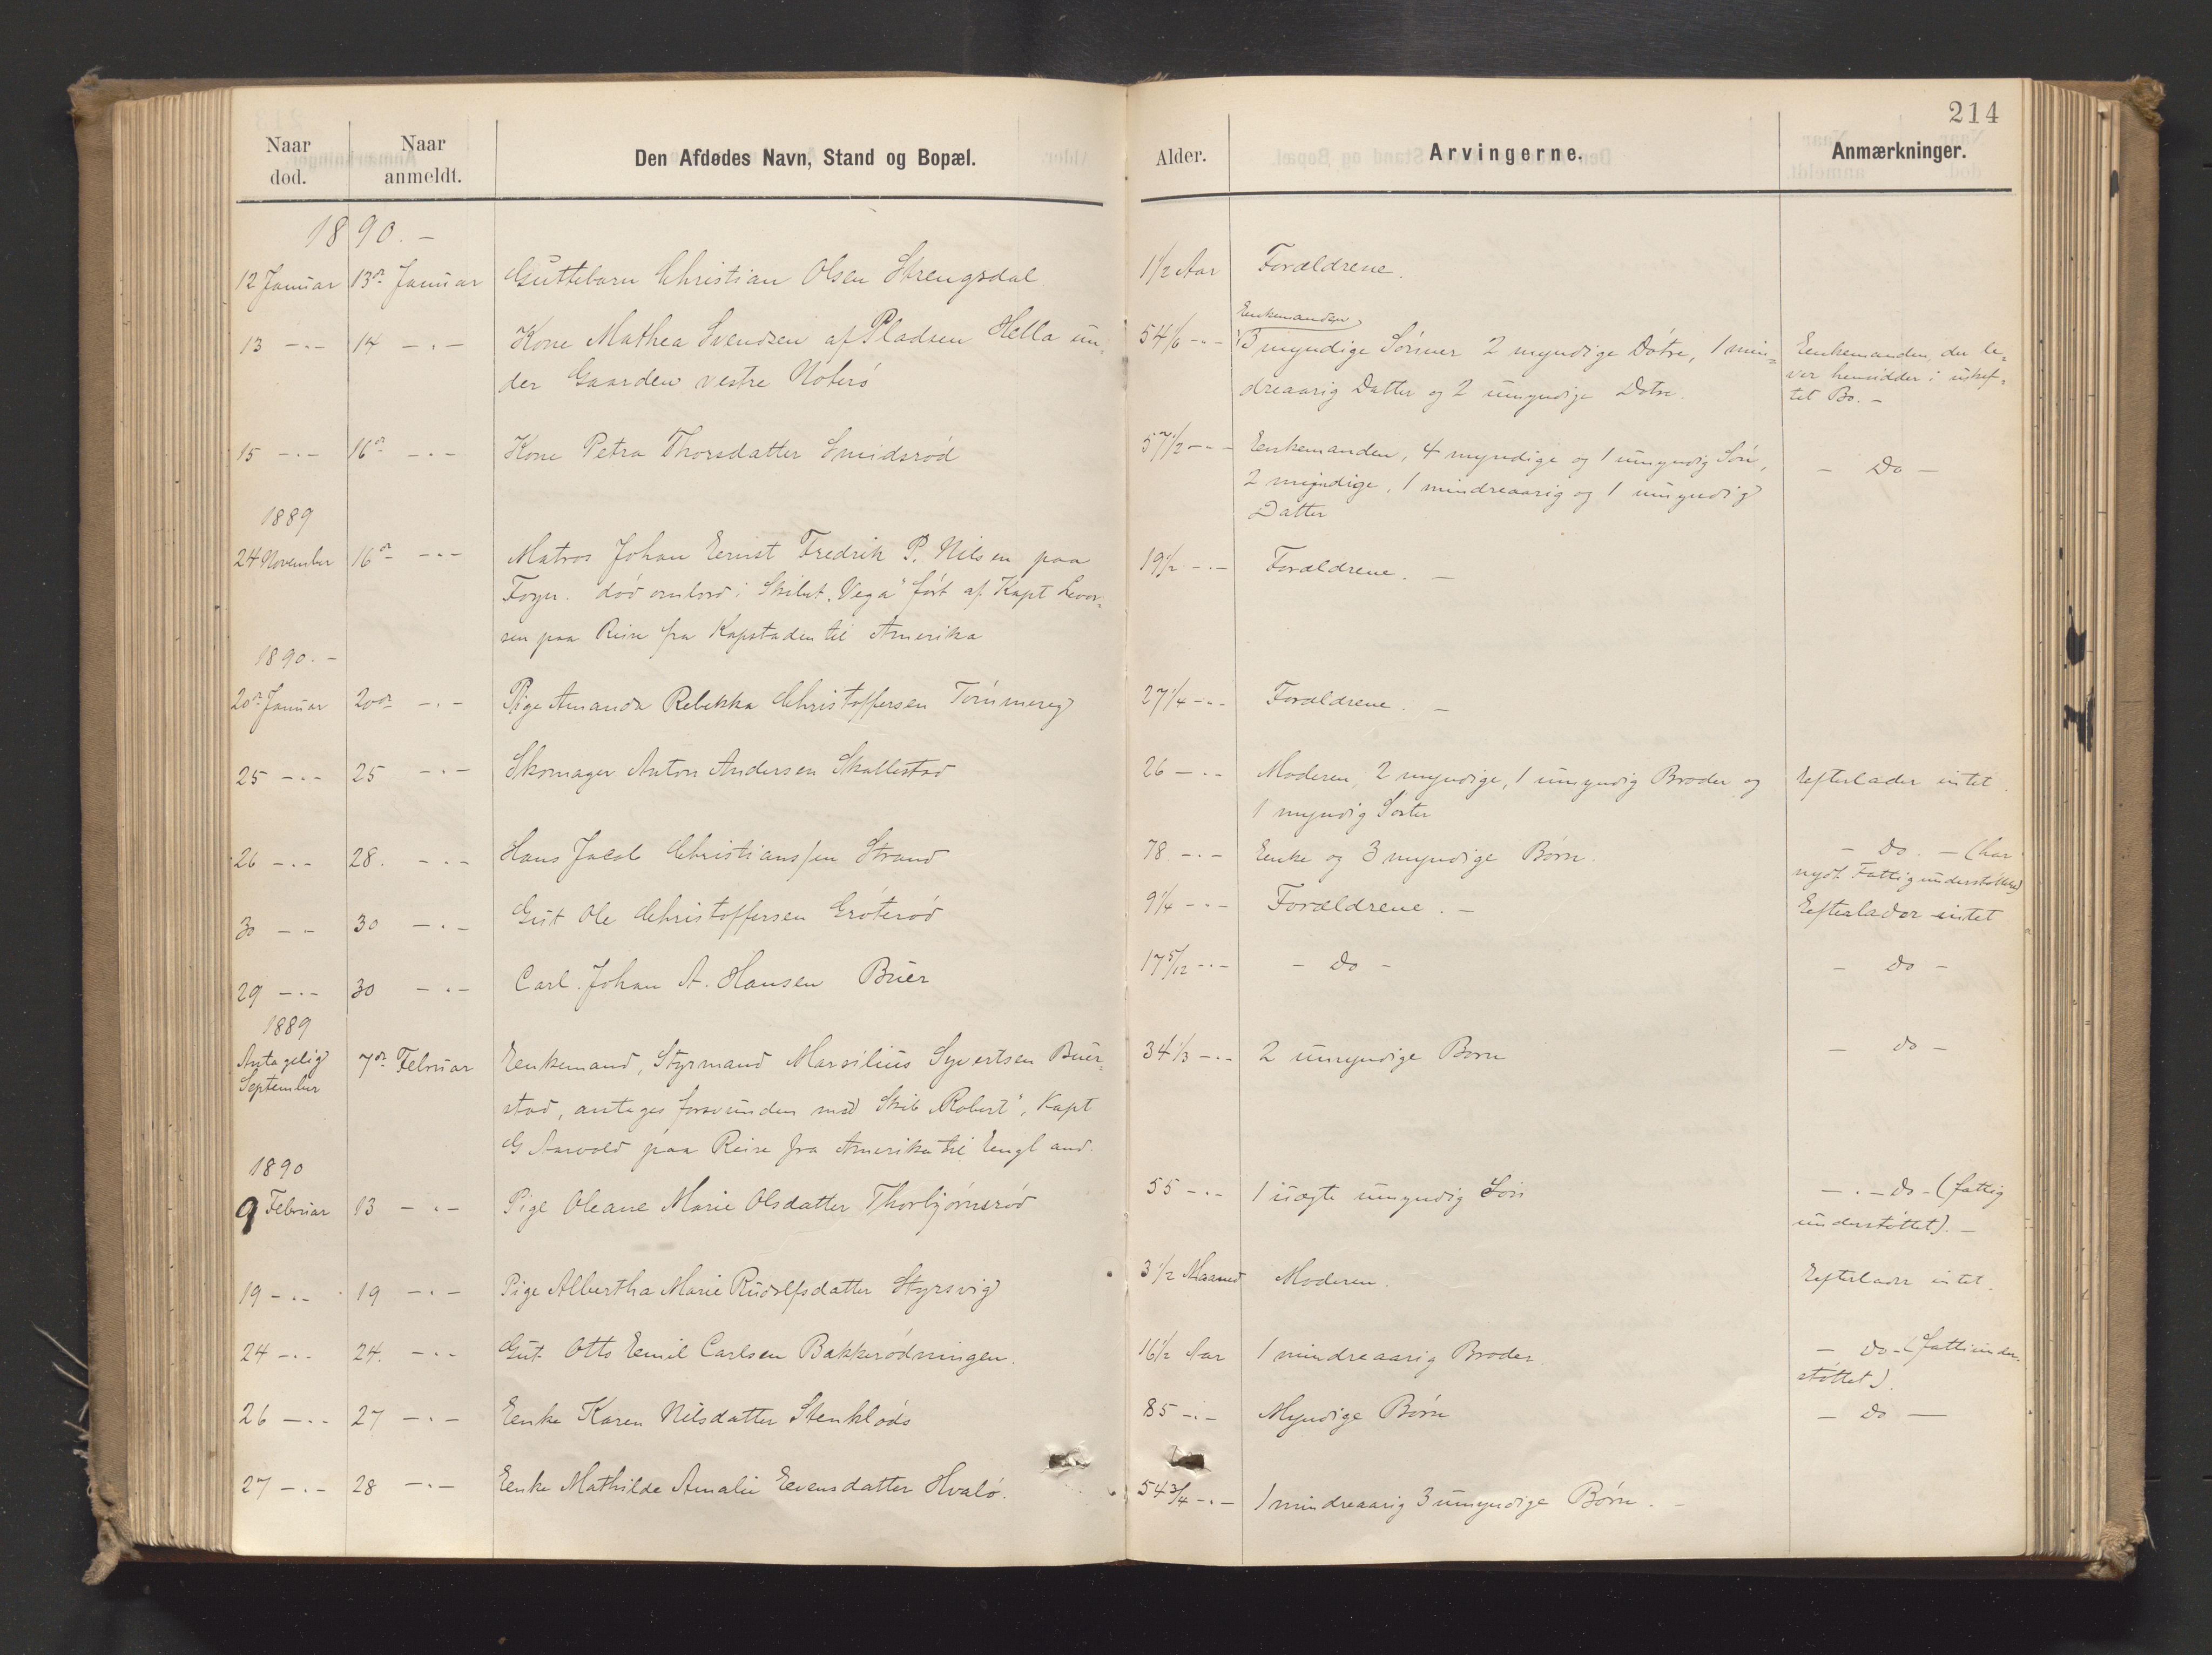 214
Naar
død.
Naar
anmeldt.
Den Afdødes Navn, Stand og Bopæl.
Alder.
Arvingerne.
Anmærkninger.
1890. -
12 Januar 13de Januar Guttebarn Christian Olsen Strengsdal 1 1/2 Aar Forældrene.
Enkemanden,
13 -"- 14 -"- Kone Mathea Svendsen af Pladsen Hella un- 54 1/6 -"- 3 myndige Sønner 2 myndige Døtre, 1 min- Eenkemanden, der le-
der Gaarden vestre Nøterø dreaarig Datter og 2 umyndige Døtre. ver hensidder i uskif-
tet Bo. -
15 -"- 16de -"- Kone Petra Thorsdatter Smidsrød 57 1/2 -"- Eenkemanden, 4 myndige og 1 umyndig Søn, - Do -
2 myndige, 1 mindreaarig og 1 umyndig
Datter
1889
24 November 16de -"- Matros Johan Ernst Fredrik P. Nilsen paa 19 1/2 -"- Forældrene. -
Føyn. død ombord i Skibet "Vega" ført af Kapt Levor-
sen paa Reise fra Kapstaden til Amerika
1890. -
20de Januar 20de -"- Pige Amanda Rebekka Christoffersen Tømmereg 27 1/4 -"- Forældrene. -
25 -"- 25 -"- Skomager Anton Andersen Skallestad 26 -"- Moderen, 2 myndige, 1 umyndig Broder og Efterlader intet.
1 myndig Søster
26 -"- 28. -"- Hans Jacob Christianssen Strand 78 -"- Enke og 3 myndige Børn. - Do. - (har
nydt Fattigunderstøttelse)
30 -- 30 -"- Gut Ole Christoffersen Grøterød 9 1/4 -"- Forældrene. - Efterlader intet
29 -"- 30 -"- Carl Johan A. Hansen Buer 17 5/12 -"- - Do - - do -
1889
Antagelig 7de Februar Eenkemand, Styrmand Marsilius Syvertsen Buer- 34 1/3 -"- 2 umyndige Børn - do -
September
stad, antages forsvunden med Skib "Robert", Kapt
G Aarvold paa Reise fra Amerika til England.
1890
9 Februar 13 -"- Pige Oleane Marie Olsdatter Thorbjørnsrød 55 -"- 1 uægte umyndig Søn -"- do - (fattig
understøttet). -
19 -"- 19 -"- Pige Albertha Marie Rudolfsdatter Styrsvig 3 1/2 Maaned Moderen. Efterlader intet.
24 -"- 24. -"- Gut Otto Emil Carlsen Bakkerødningen. 16 1/2 Aar 1 mindreaarig Broder. - do - (fattiunder-
støttet).
26 -"- 27 -"- Eenke Karen Nilsdatter Stenkløds 85 -"- Myndige Børn - do -
27 -"- 28 -"- Eenke Mathilde Amalie Evensdatter Hvalø. 54 3/4 -"- 1 mindreaarig 3 umyndige Børn. -